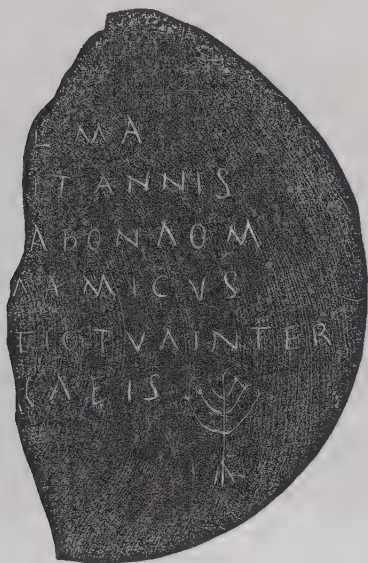 IMA
ITANNIS
ABONAOM
AAMICVS
TIOTVAINTER
CAEIS